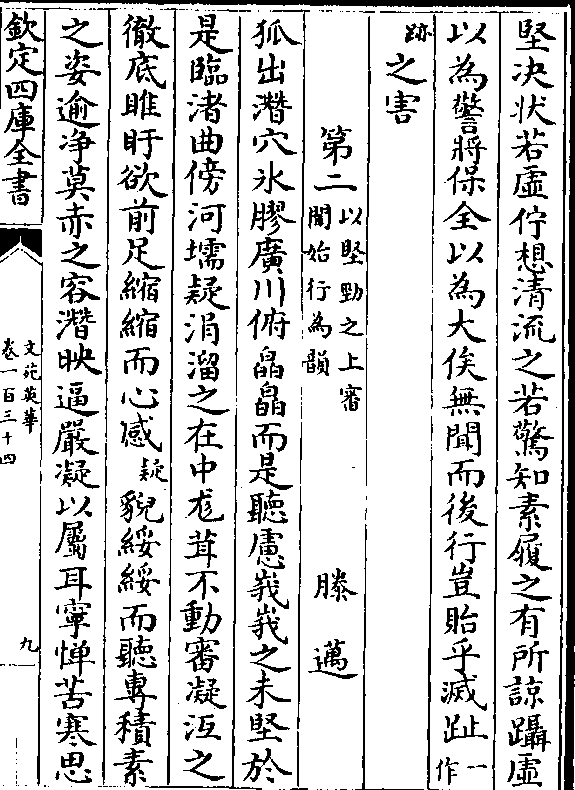 堅決状若虛佇想清流之若驚知素履之有所諒躡虛
以為警將保全以為大俟無聞而後行豈貽乎滅趾一作
跡之害
第二以堅勁之上審聞始行為韻 滕邁
狐出潛穴氷膠廣川俯皛皛而是聽慮峩峩之未堅於
是臨渚曲傍河壖疑涓溜之在中尨茸不動審凝沍之
徹底睢盱欲前足縮縮而心感疑貌綏綏而聽專積素
之姿逾净莫赤之容潛映逼嚴凝以屬耳寧憚苦寒思
欽定四庫全書
文苑英華
卷一百三十四
九